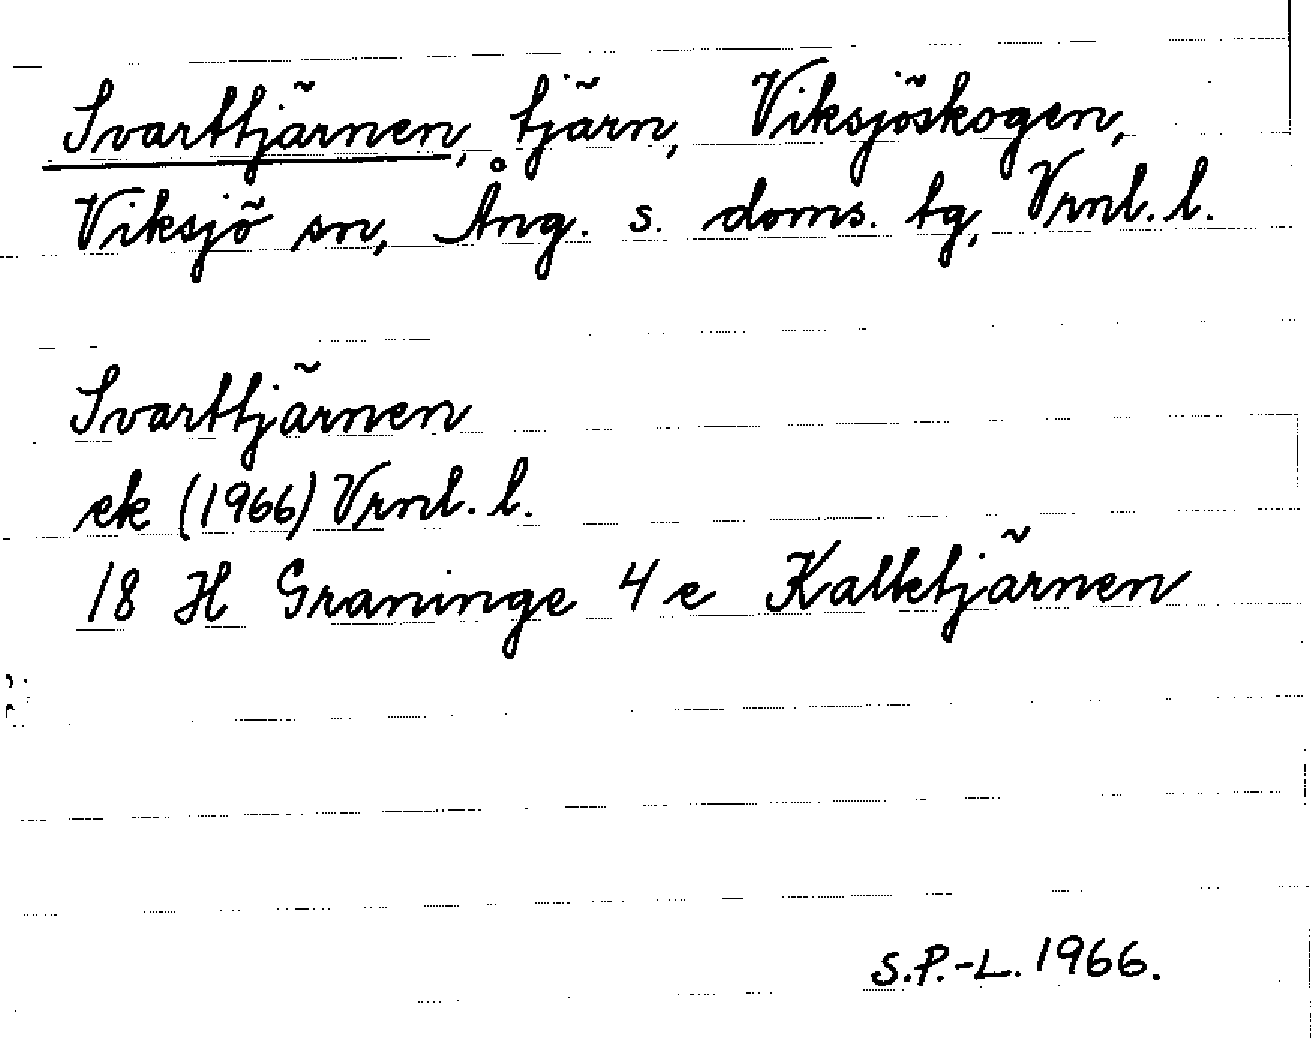 Svarttjärnen, tjärn, Viksjöskogen,
Viksjö sn, Ång. s. doms. tg, Vrnl. l.
Svarttjärnen
ek (1966) Vrnl. l.
18 H Graninge 4 e Kalktjärnen
S.P.-L. 1966.